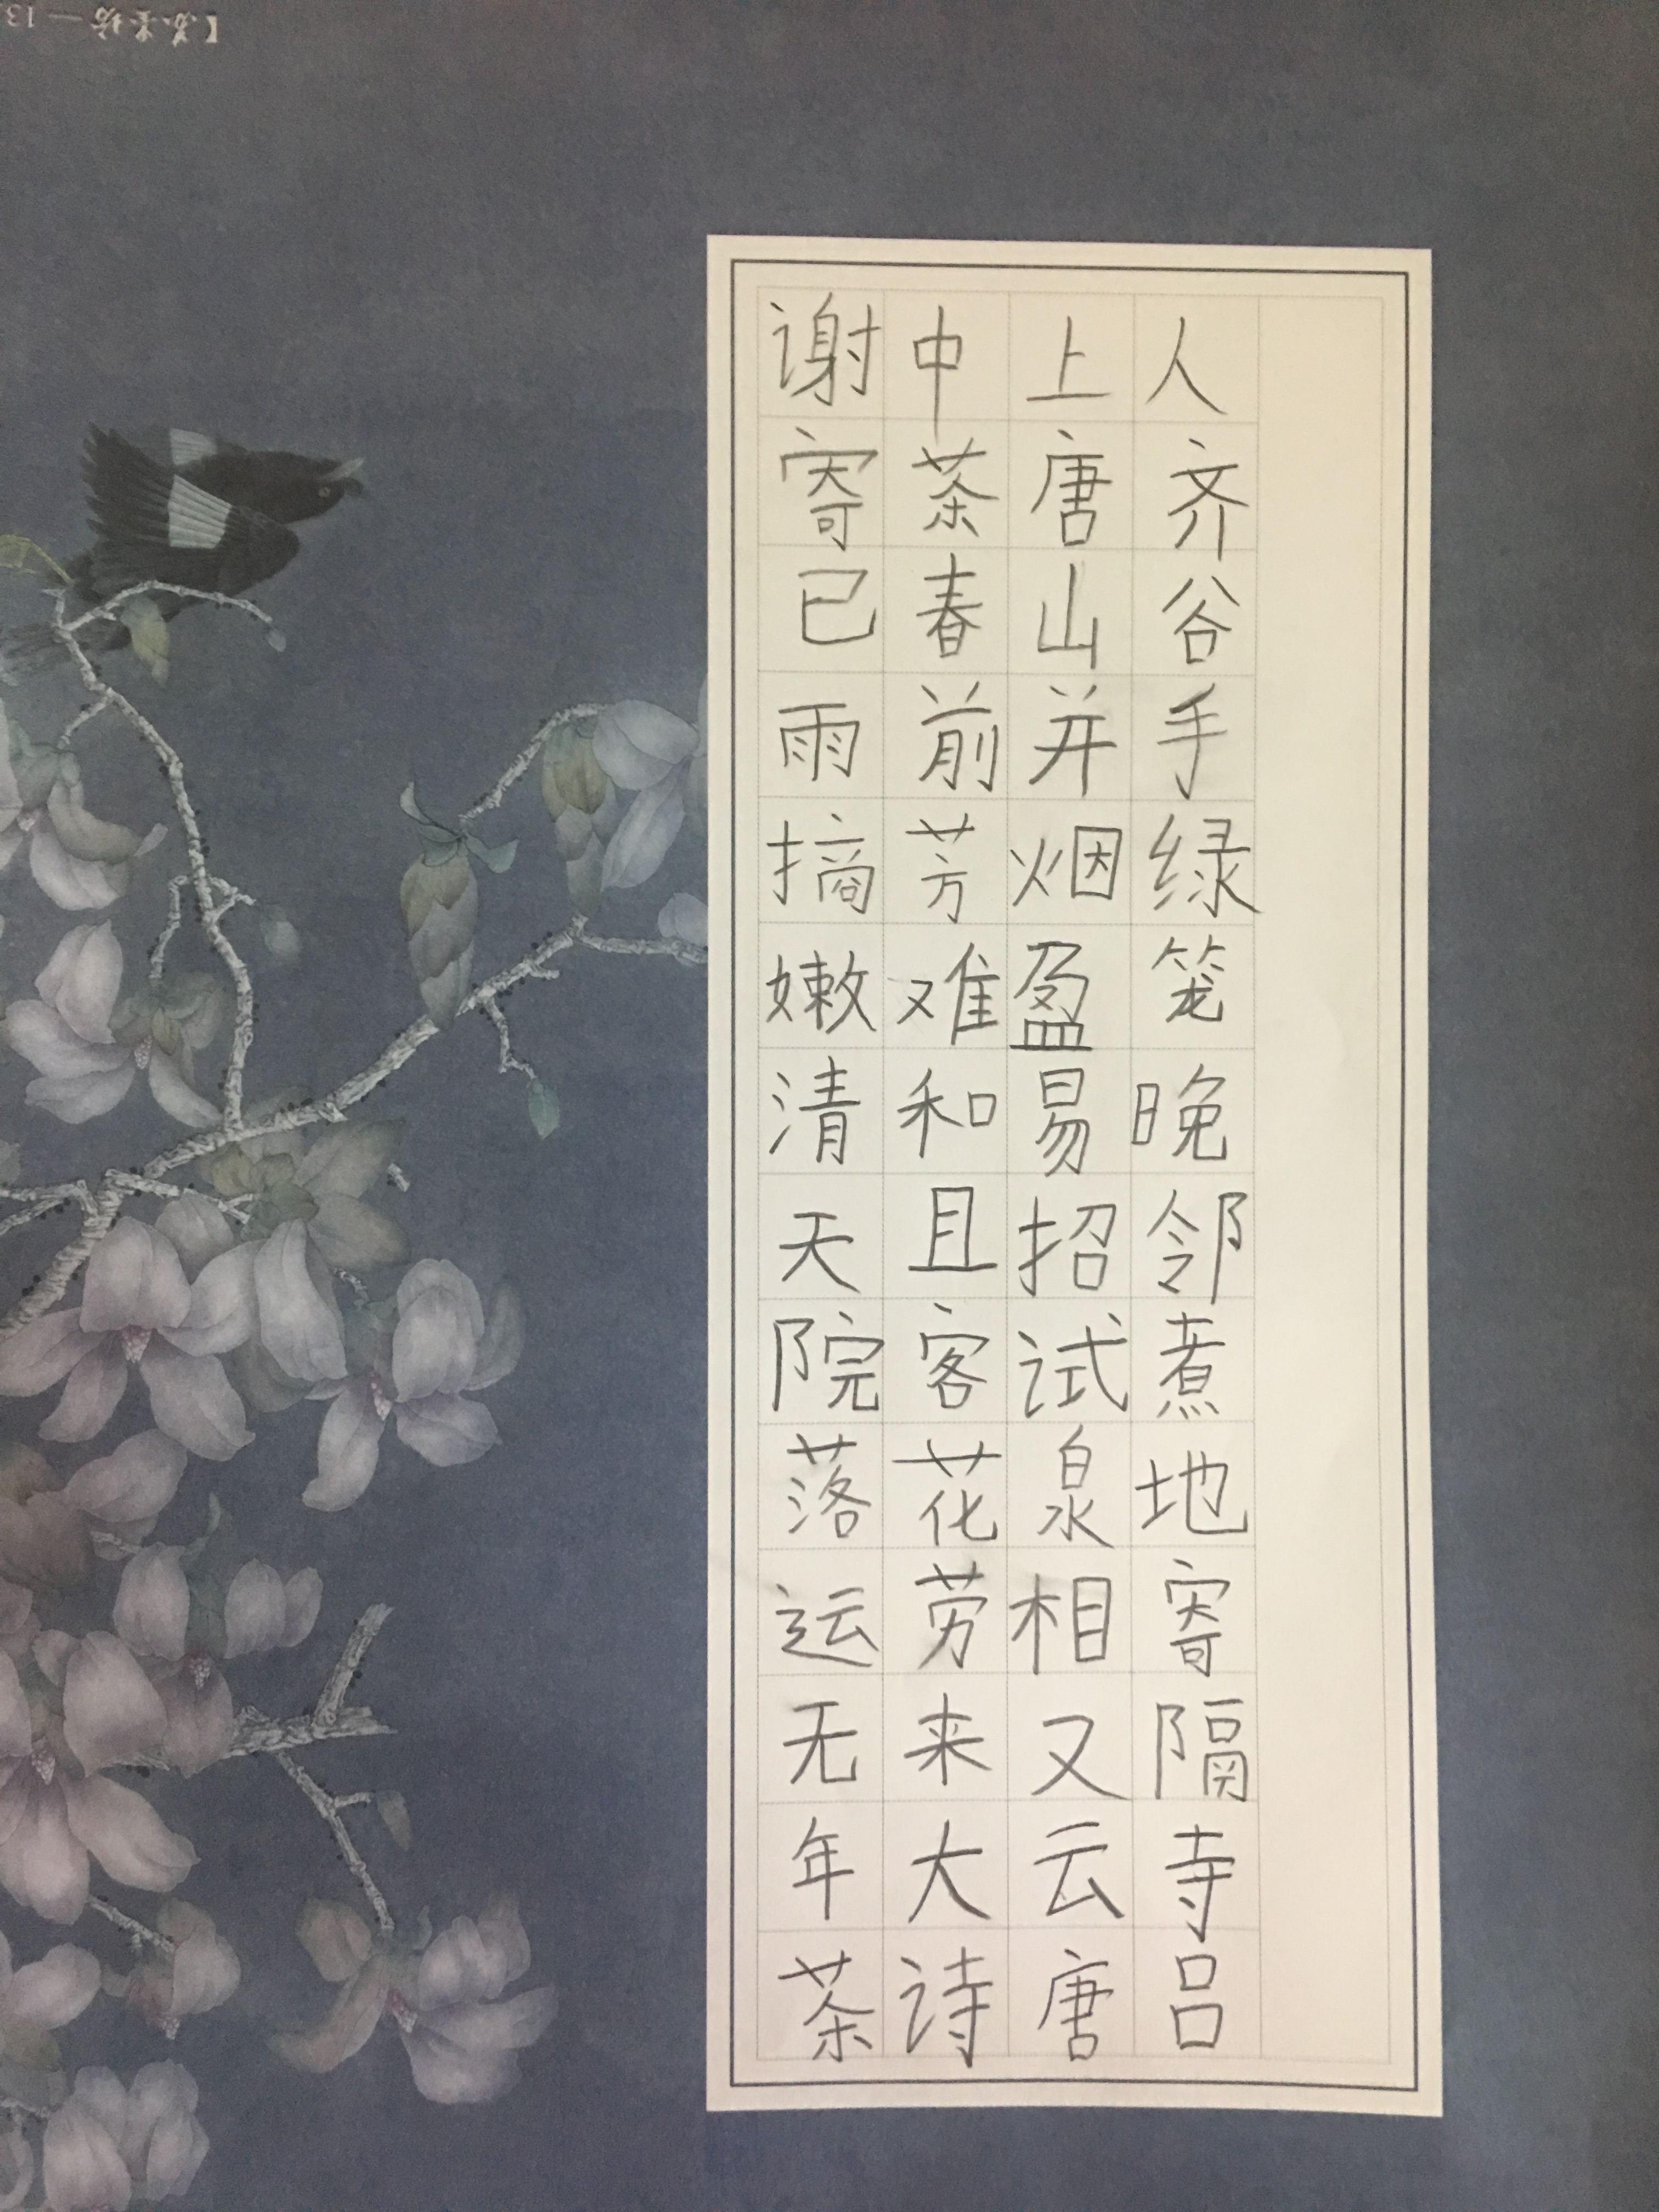 谢中上人
寄茶唐齐
已春山谷
雨前并手
摘芳烟绿
嫩难盈笼
清和易晚
天且招邻
院客试煮
落花泉地
运劳相寄
无来又隔
年大云寺
茶诗唐吕